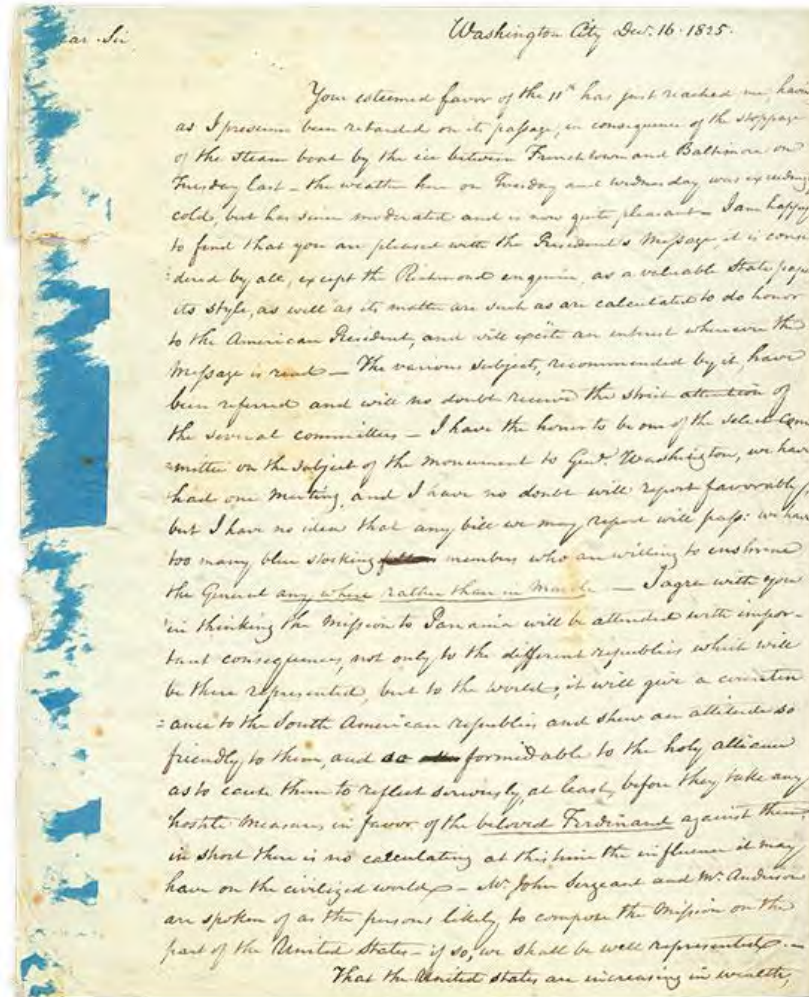 ear Sir
Washington City Dec. 16. 1825.
Your esteemed favor of the 11th has just reached me, havin
as I presume been retarded on its passage, in consequence of the stoppage
of the steam boat by the ice between Frenchtown and Baltimore on
Tuesday last – the weather here on Tuesday and wednesday was exceeding
cold, but has since moderated and is now quite pleasant – I am happy
to find that you are pleased with the President's Message, it is consi
=dered by all, except the Richmond enquirer, as a valuable State paper
its style, as well as its matter are such as are calculated to do honor
to the American President, and will excite an interest wherever the
Message is read – The various subjects, recommended by it, have
been referred and will no doubt receive the strict attention of
the several committees – I have the honor to be one of the select com
=mittee on the subject of the monument to Genl. Washington, we have
had one meeting, and I have no doubt will report favorably,
but I have no idea that any bill we may report will pass: we have
too many blue stocking members who are willing to enshrine
the General any where rather than in Marble – I agree with you
in thinking the Mission to Panama will be attended with impor-
tant consequences, not only to the different republics which will
be there represented, but to the world, it will give a counten
=ance to the South American republics and shew an attitude so
friendly to them, and so formidable to the holy alliance
as to cause them to reflect seriously, at least, before they take any
hostile measures in favor of the beloved Ferdinand against them,
in short there is no calculating at this time the influence it may
have on the civilized world – Mr. John Sergeant and Mr. Anderson
are spoken of as the persons likely to compose the Mission on the
part of the United States – if so, we shall be well represented. –
That the United States are increasing in wealth,